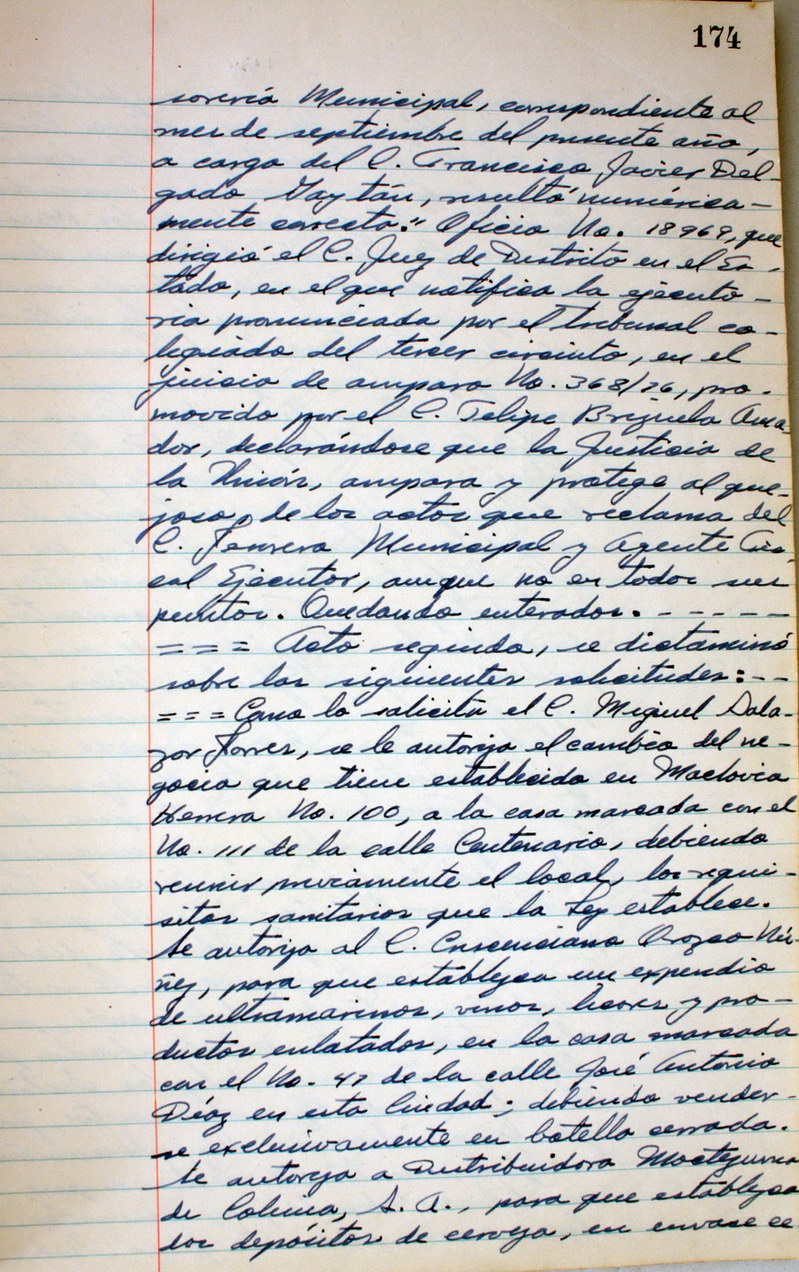 174
sorería Municipal, correspondiente al
mes de septiembre del presente año,
a cargo del C. Francisco Javier Del-
gado Gaytán, resultó numérica-
mente correcta." Oficio No. 18969, que
dirigió el C. Juez de Distrito en el Es-
tado, en el que notifica la ejecuto-
ria pronunciada por el tribunal co-
legiado del tercer circuito, en el
juicio de amparo No. 368/76, pro-
movido por el C. Felipe Brizuela Ama-
dor, declarándose que la Justicia de
la Unión, ampara y protege al que-
joso, de los actos que reclama del
C. Tesorero Municipal y Agente Fis-
cal Ejecutor, aunque no en todos sus
puntos. Quedando enterados. - - - - -
= = = Acto seguido, se dictaminó
sobre las siguientes solicitudes: - -
= = = Como lo solicita el C. Miguel Sala-
zar Torres, se le autoriza el cambio del ne-
gocio que tiene establecido en Maclovio
Herrera No. 100, a la casa marcada con el
No. 111 de la calle Centenario, debiendo
reunir previamente el local, los requi-
sitos sanitarios que la Ley establece.
Se autoriza al C. Crescenciano Orozco Nú-
ñez, para que establezca un expendio
de ultramarinos, vinos, licores y pro-
ductos enlatados, en la casa marcada
con el No. 47 de la calle José Antonio
Díaz en esta Ciudad; debiendo vender-
se exclusivamente en botella cerrada.
Se autoriza a Distribuidora Moctezuma
de Colima, S. A., para que establezca
dos depósitos de cerveza, en envase ce